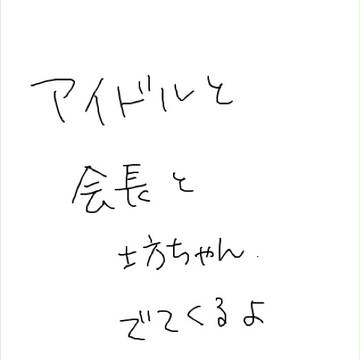 アイドルと
会長と
坊ちゃん.
でてくるよ